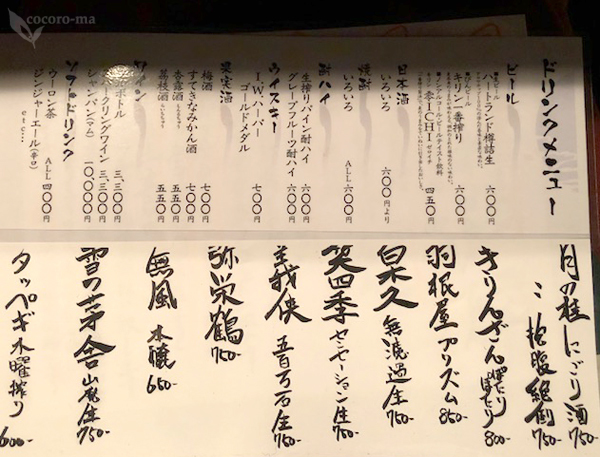 cocoro-ma
ドリンクメニュー
ビール
●生ビール
ハートランド樽詰生 六〇〇円
●びんビール
キリン一番搾り 六〇〇円
●ノンアルコール・ビールテイスト飲料
零ICHI ゼロイチ 四五〇
日本酒
いろいろ 六〇〇円より
焼酎
いろいろ ALL 六〇〇円
酎ハイ
生搾りパイン酎ハイ 六〇〇円
グレープフルーツ酎ハイ 六〇〇円
ウイスキー
I.W.ハーパー
ゴールドメダル 七〇〇円
果実酒
梅酒 七〇〇円
すてきなみかん酒 七〇〇円
杏露酒 五五〇円
荔枝酒 五五〇円
ワイン
ボトル 三、三〇〇円
スパークリングワイン 三、三〇〇円
シャンパン(マム) 一〇、〇〇〇円
ソフトドリンク
ウーロン茶 ALL 四〇〇円
ジンジャーエール(辛口)
etc...
月の桂 にごり酒 750-
〃 抱腹絶倒 750-
きりんざん ぽたりぽたり 800-
羽根屋 プリズム 850-
白木久 無濾過生 750-
笑四季 センセーション生 750-
義侠 五百万石生 750-
弥栄鶴 750-
無風 本醸 650-
雪の茅舎 山廃生 750-
タッペギ 木曜搾り 600-